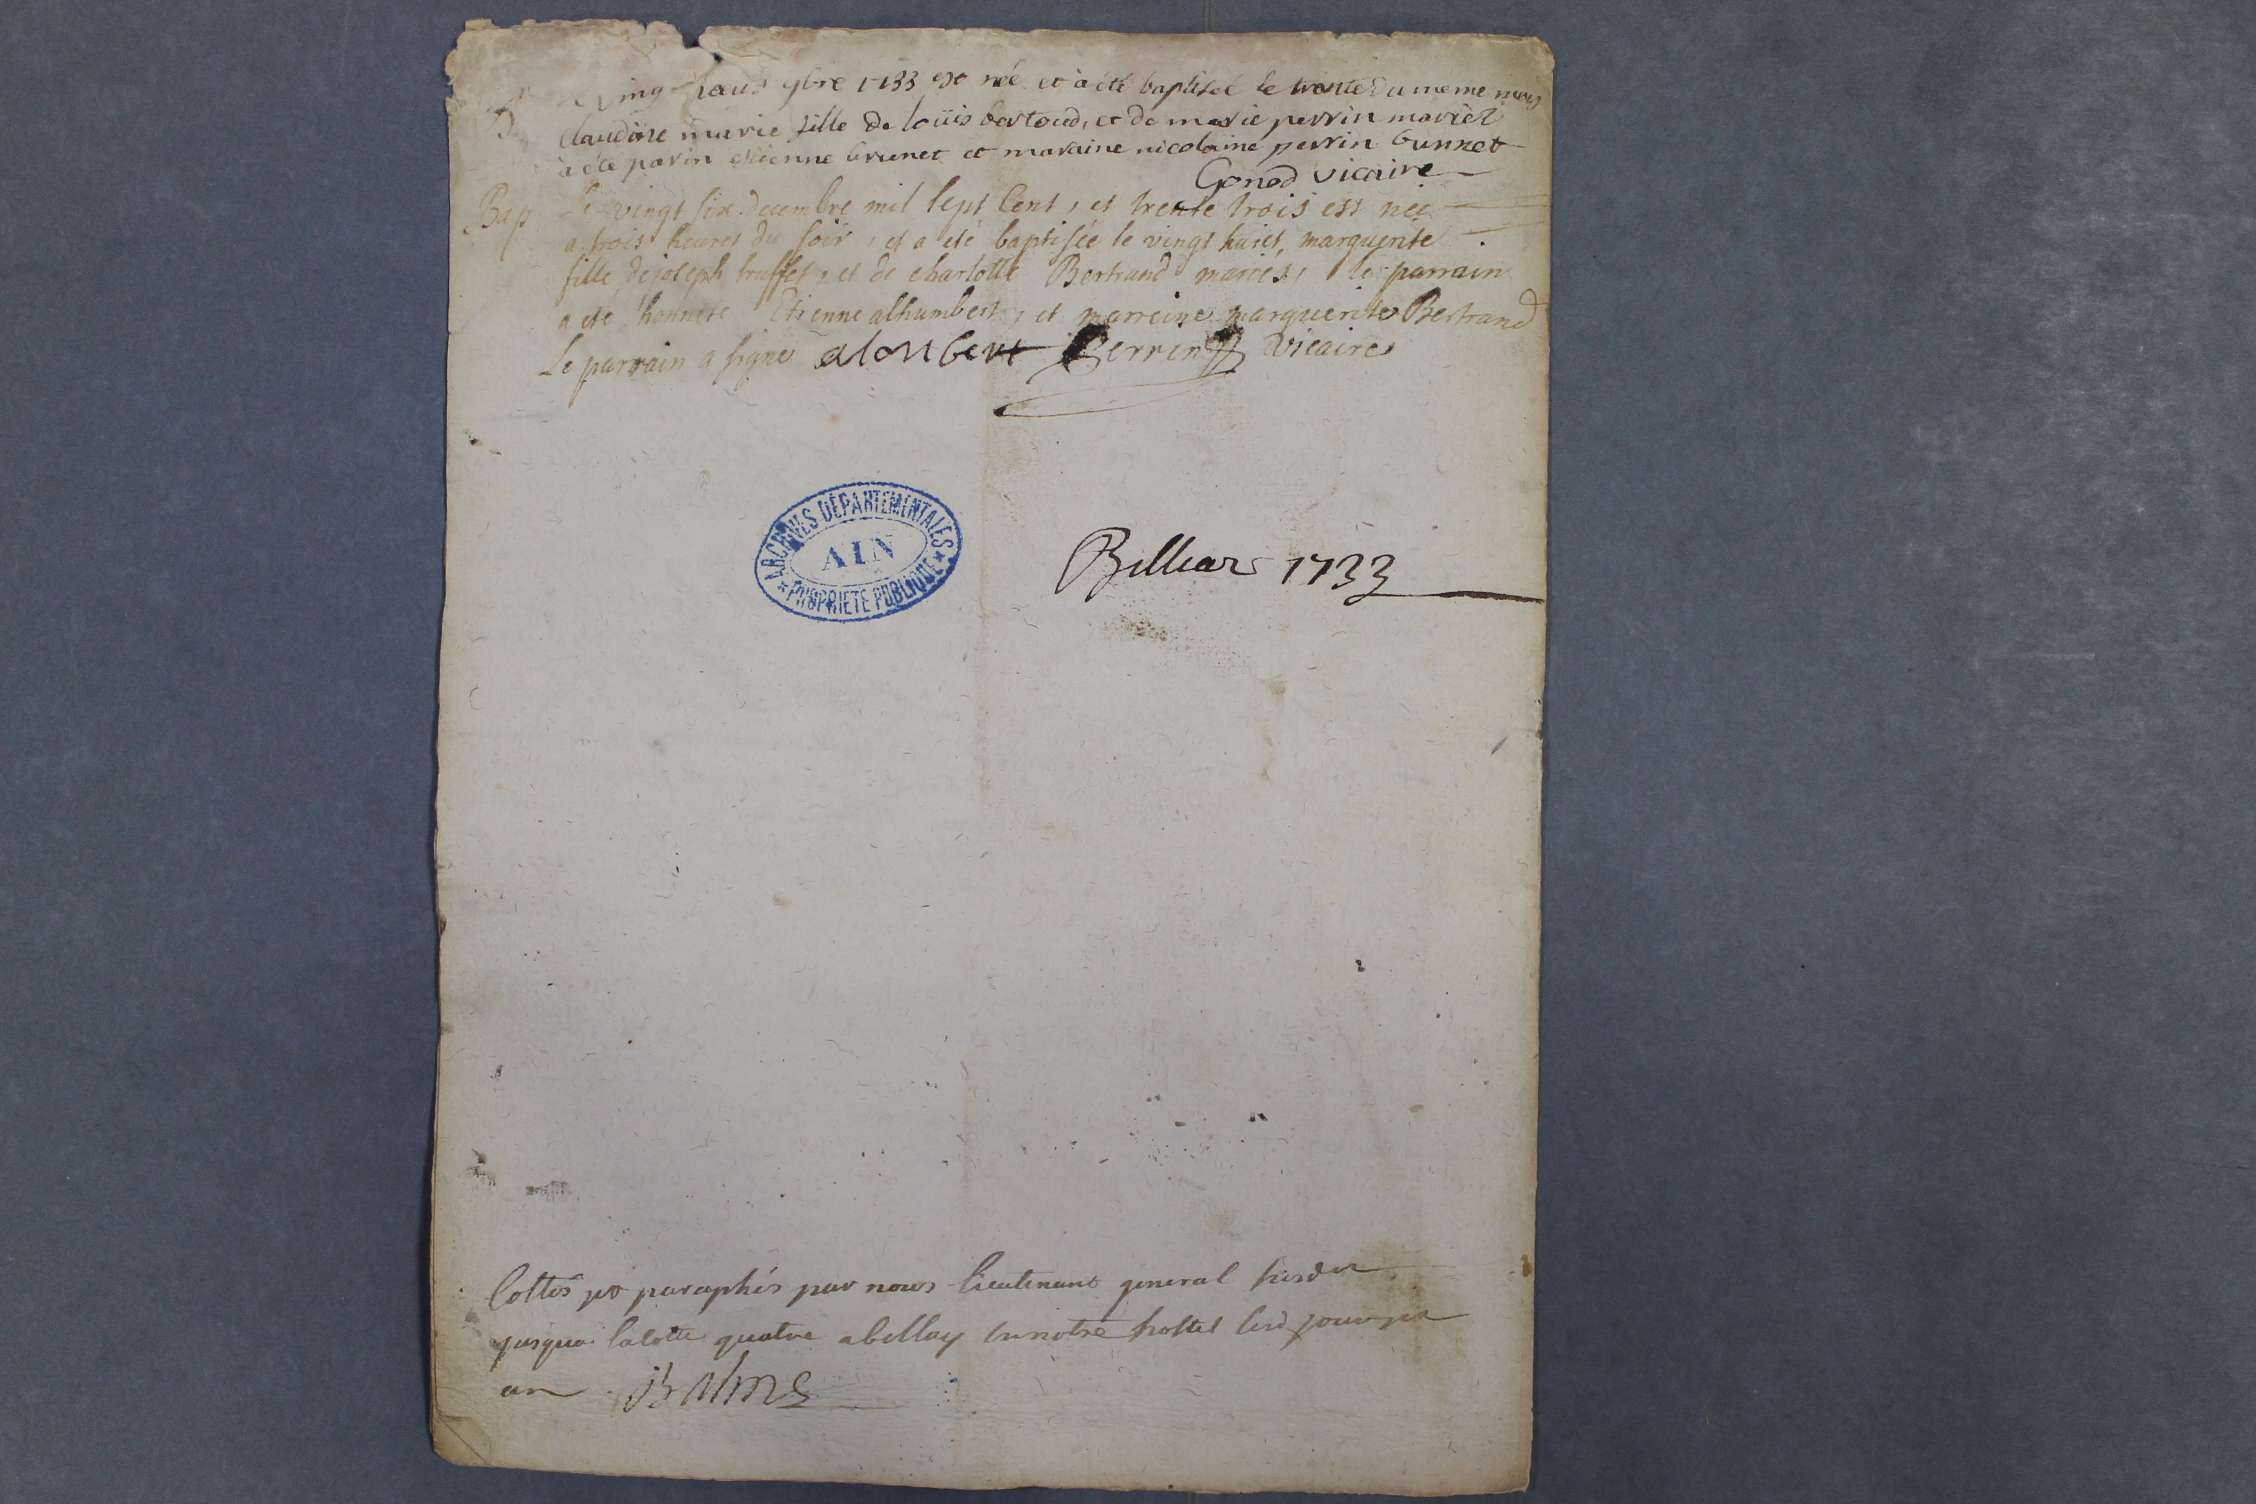 9bre 1733 est née et à été baptisée le trente du meme mois
claudine marie fille de loüis bertoud, et de marie perrin mariés
à été parin etienne brunet et maraine nicolaine perrin
Gonod vicaire
Bap Le vingt six decembre mil sept Cent, et trente trois est née
a trois heures du soir, et a eté baptisée le vingt huict, marguerite
fille de joseph truffet, et de charlotte Bertrand mariés, le parrain
a eté honnete Etienne alhumbert, et marreine marguerite Bertrand
Le parrain a signé alonbert Perrin vicaire
ARCHIVES DÉPARTEMENTALES
AIN
PROPRIETE PUBLIQUE
Billiat 1733
Cottés et paraphés par nous Lieutenant general
jusqua la cotte quatre a bellay en notre hostel lesd jour et
an